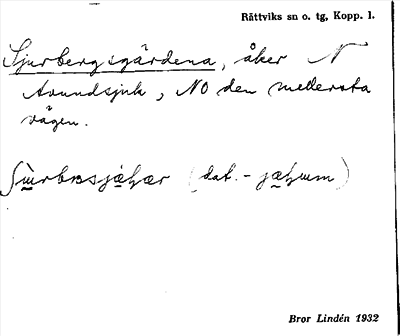 Rättviks sn o. tg, Kopp. l.
Sjurbergsgärdena, åker N
Avundsjuk, NO den mellersta
vägen.
(dat. -
Bror Lindén 1932